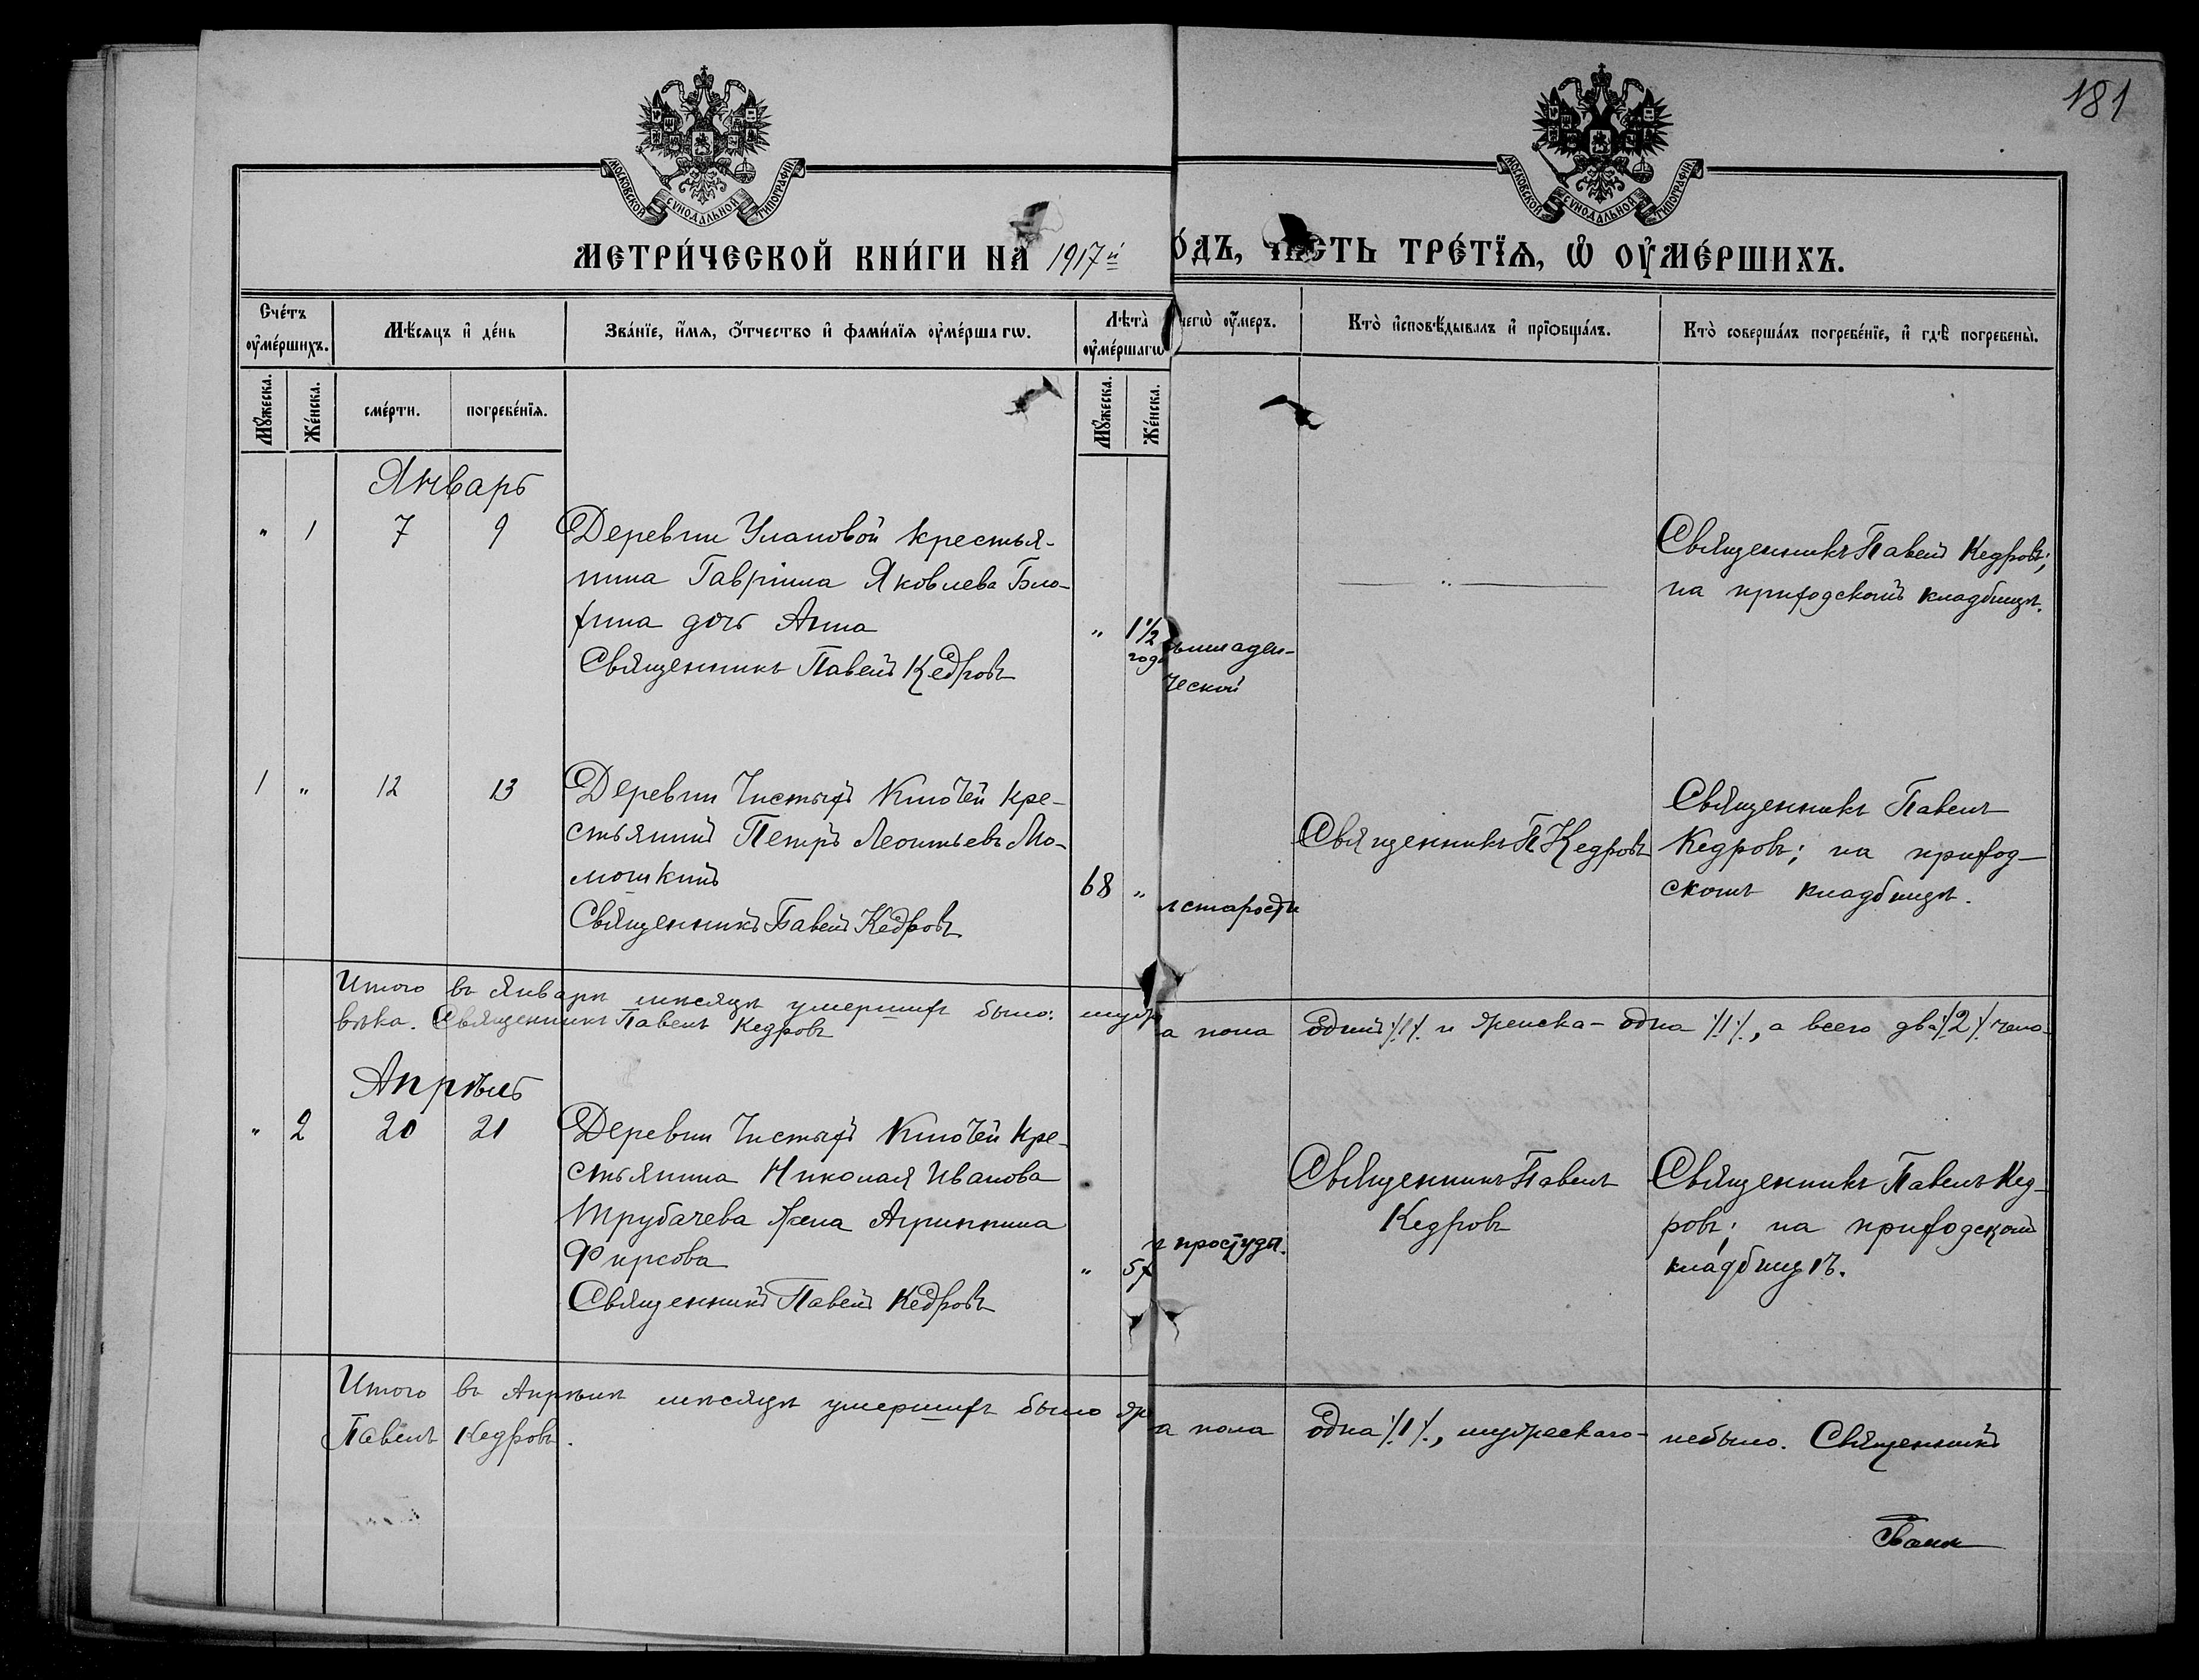 181
МОСКОВСКОЙ СѴНОДАЛЬНОЙ ТИПОГРАФІИ
МОСКОВСКОЙ СѴНОДАЛЬНОЙ ТИПОГРАФІИ
МЕТРИ́ЧЕСКОЙ КНИ́ГИ НА 1917й
О́ДЪ, ЧАСТЬ ТРЕ́ТЇѦ, Ѿ ОУ҆МЕ́РШИХЪ.
Сче́тъ оу҆ме́ршихъ.
Мѣ́сяцъ и҆ де́нь
Зва́нїе, и҆́мѧ, ѻ҆́тчество и҆ фами́лїѧ оу҆ме́ршагѡ.
Лѣ̑та̀ оу҆ме́ршагѡ
чегѡ̀ оу҆́меръ.
Кто̀ и҆сповѣ́дывалъ и҆ прїѻбща́лъ.
Кто̀ соверша́лъ погребе́нїе, и҆ гдѣ̀ погребены̀.
Мꙋ́жеска.
Же́нска.
сме́рти.
погребе́нїѧ.
Мꙋ́жеска.
Же́нска.
Январь
" 1 7 9 Деревни Улановой крестья-
нина Гавріила Яковлева Блю-
хина дочь Анна
Священникъ Павелъ Кедровъ
" 1 1/2
года
младен-
ческой
Священникъ Павелъ Кедровъ;
на приходскомъ кладбищѣ.
1 " 12 13 Деревни Чистыхъ Ключей кре-
стьянинъ Петръ Леонтьевъ Мо-
мошкинъ
Священникъ Павелъ Кедровъ
68 "
старости
Священникъ П Кедровъ
Священникъ Павелъ
Кедровъ; на приход-
скомъ кладбищѣ.
Итого въ Январѣ мѣсяцѣ умершихъ было: муж
а пола одинъ /1/ и женска - одна /1/, а всего два /2/ чело-
вѣка. Священникъ Павелъ Кедровъ
Апрѣль
" 2 20 21 Деревни Чистыхъ Ключей кре-
стьянина Николая Иванова
Трубачева жена Агриппина
Фирсова
Священникъ Павелъ Кедровъ
"
простуды.
Священникъ Павелъ
Кедровъ
Священникъ Павелъ Кед-
ровъ; на приходскомъ
кладбищѣ.
Итого въ Апрѣлѣ мѣсяцѣ умершихъ было ж
а пола одна /1/, мужескаго - небыло. Священникъ
Павелъ Кедровъ.